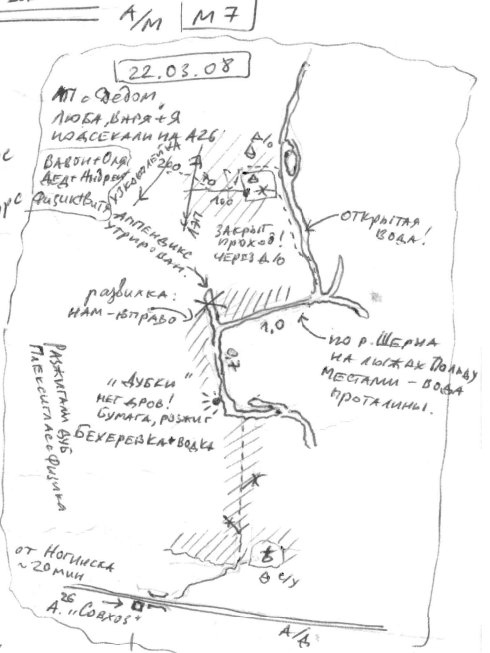 А/М М7
22.03.08
ЛП с Дедом,
ЛЮБА, ВАРЯ + Я
ПОДСЕКАЛИ НА А26
ВАВОН+ОЛЯ
ДЕД+АНДРЕЙ
ФИЗИК+ВИТЯ
УЗКОКОЛЕЙКА
200
100
ЛЭП
Д/О
ЗАКРЫТ
ПРОХОД!
ЧЕРЕЗ Д/О
ОТКРЫТАЯ
ВОДА!
АППЕНДИКС
УТРИРОВАН
развилка:
НАМ-ВПРАВО
1,0
0,7
ПО р. ШЕРНА
НА ЛЫЖАХ ПО ЛЬДУ
МЕСТАМИ - ВОДА
ПРОТАЛИНЫ.
„ДУБКИ"
НЕТ ДРОВ!
БУМАГА, РОЗЖИГ
БЕХЕРЕВКА+ВОДКА
РАЗЖИГАЛИ ДУБ
ПЛЕКСИГЛАСС ФИЗИКА
от НОГИНСКА
~20 МИН
26
А. „СОВХОЗ"
А/Д